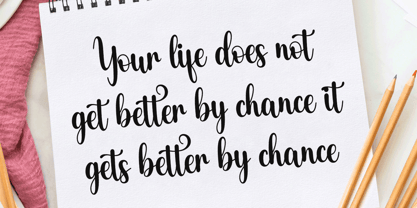 Your life does not
get better by chance it
gets better by chance